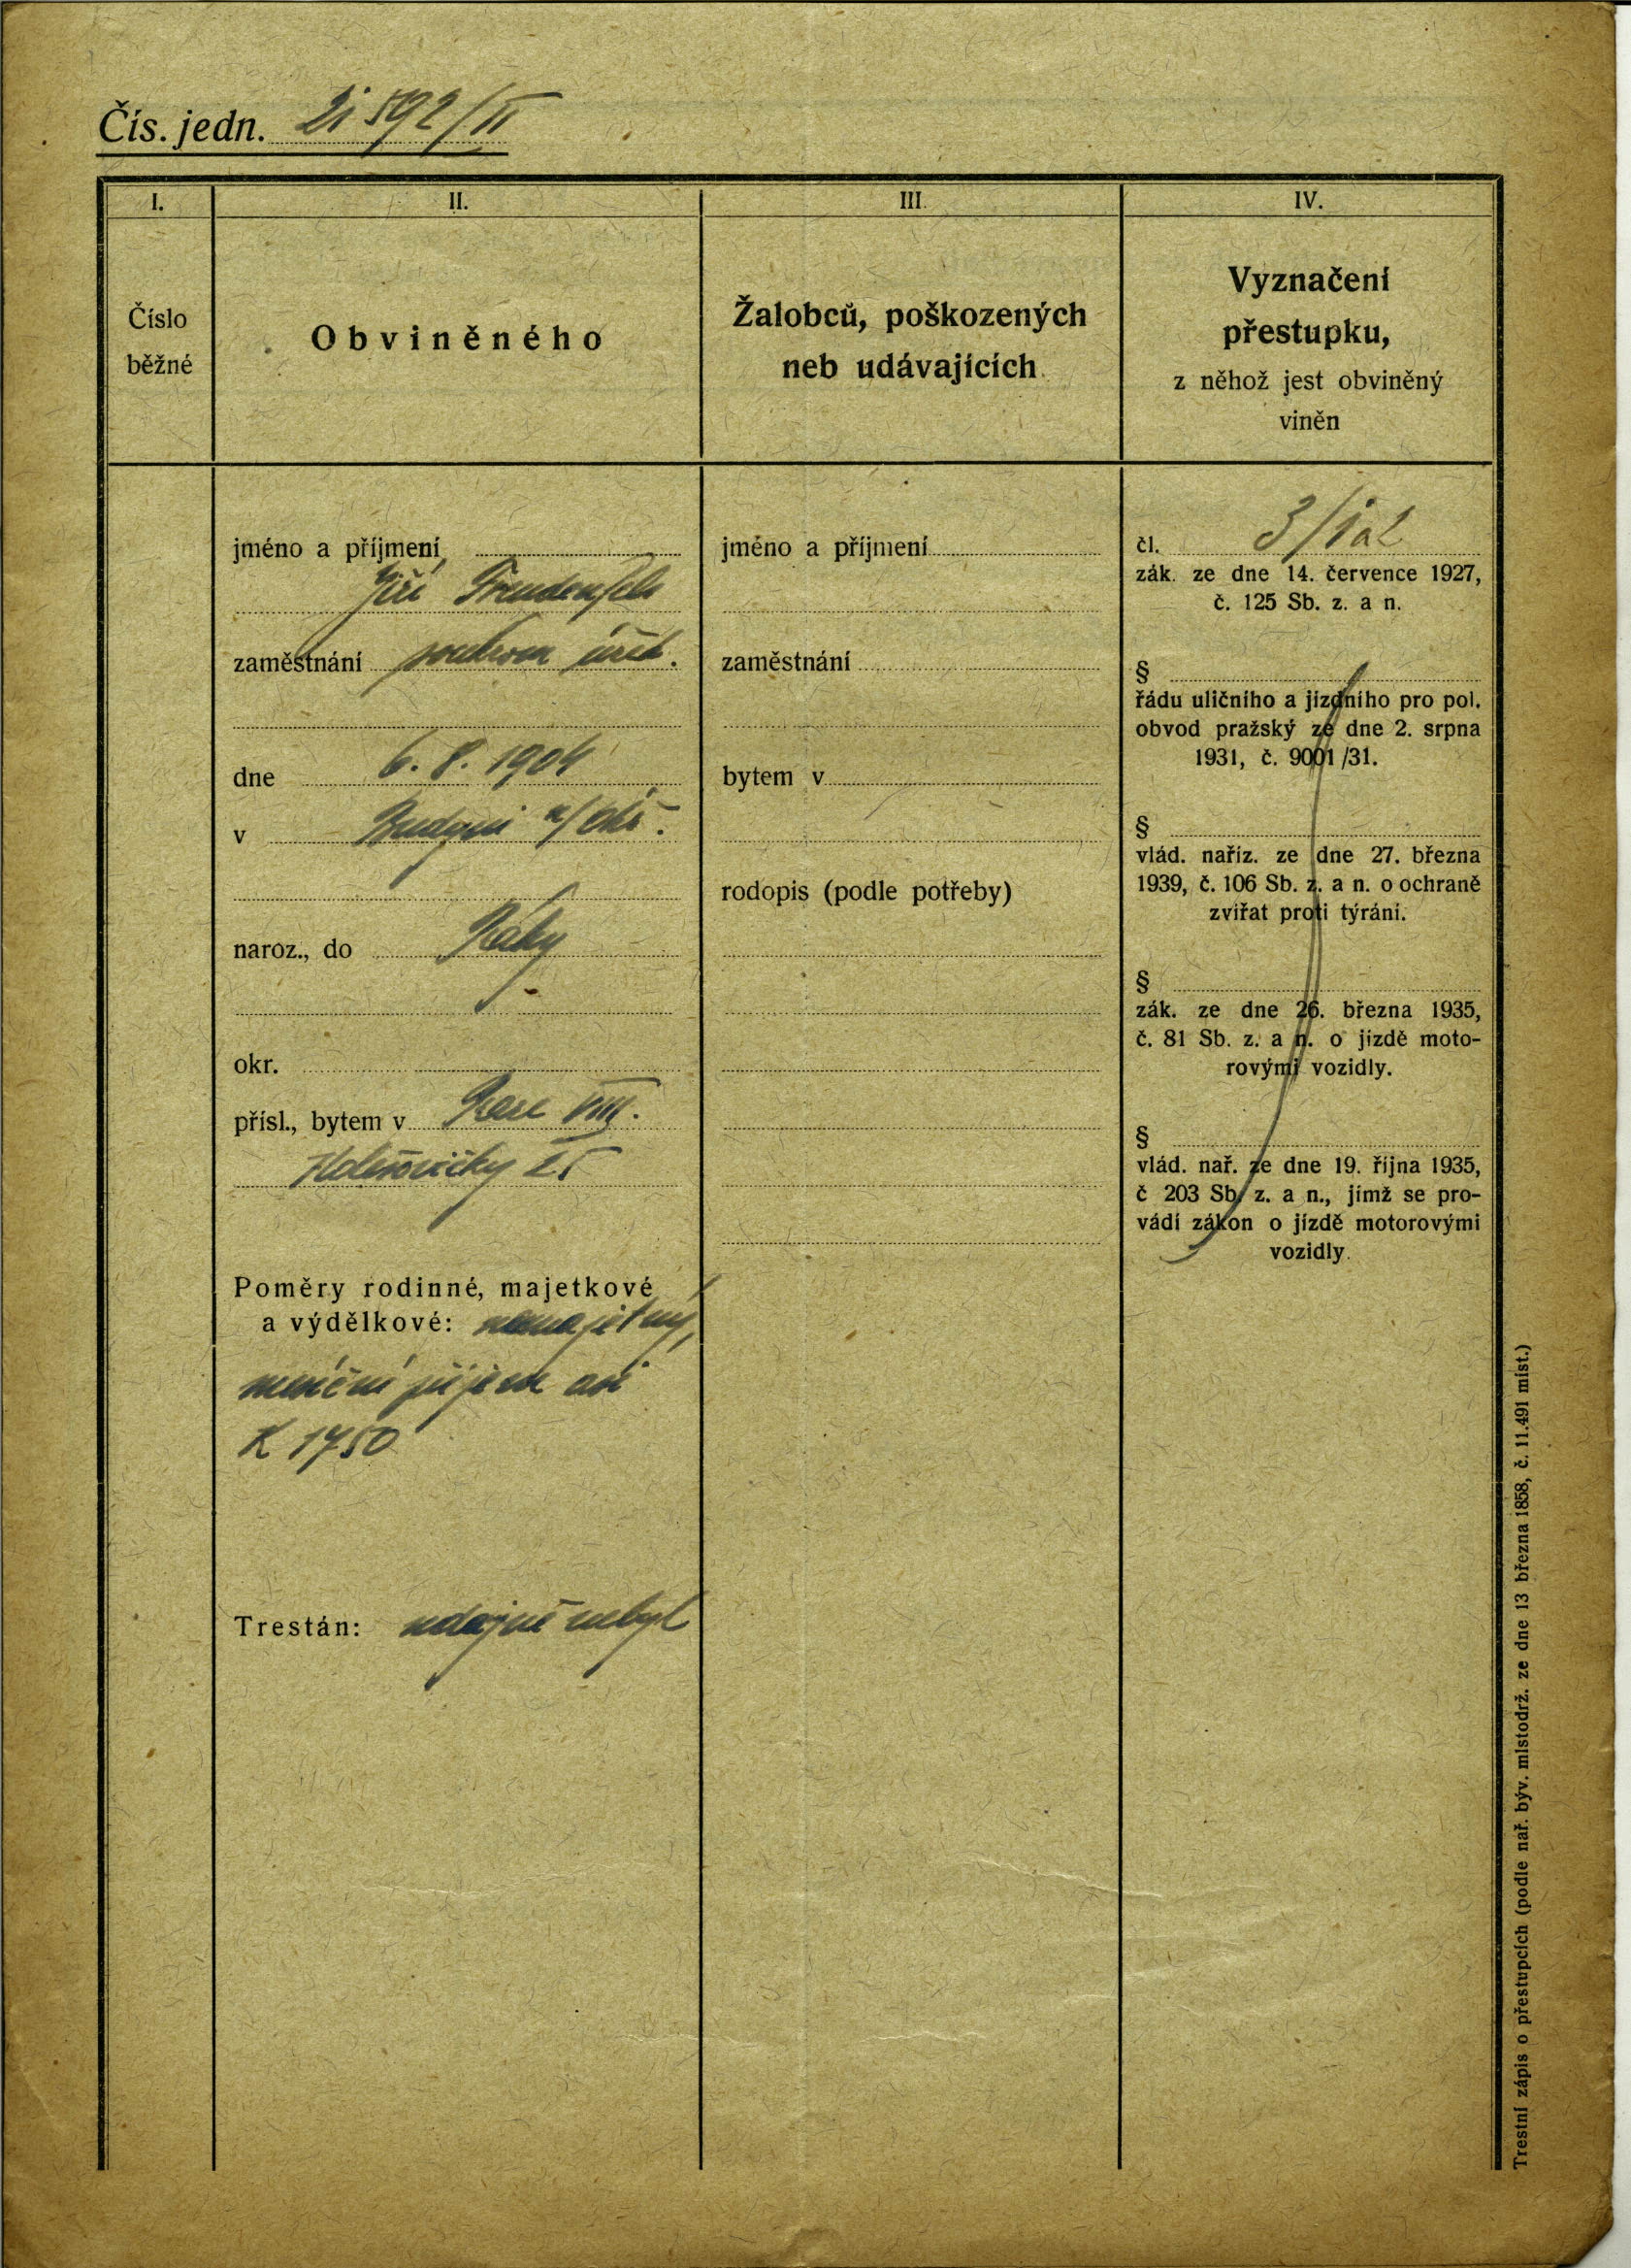 Čís. jedn. 21 592/II
I.
Číslo
běžné
II.
Obviněného
jméno a příjmení
Jiří Freudenfeld
zaměstnání soukrom úřed.
dne 6. 8. 1904
v Budyni n/Ohř.
naroz., do
okr.
přísl., bytem v Praze VIII.
Holešovičky 25
Poměry rodinné, majetkové
a výdělkové: nemajetný,
měsíční příjem asi
K 1750
Trestán: údajně nebyl
III.
Žalobců, poškozených
neb udávajících
jméno a příjmení
zaměstnání
bytem v
rodopis (podle potřeby)
IV.
Vyznačení
přestupku,
z něhož jest obviněný
viněn
čl. 3/1 a 2
zák. ze dne 14. července 1927,
č. 125 Sb. z. a n.
§
řádu uličního a jízdního pro pol.
obvod pražský ze dne 2. srpna
1931, č. 9001/31.
§
vlád. naříz. ze dne 27. března
1939, č. 106 Sb. z. a n. o ochraně
zvířat proti týrání.
§
zák. ze dne 26. března 1935,
č. 81 Sb. z. a n. o jízdě moto-
rovými vozidly.
§
vlád. nař. ze dne 19. října 1935,
č 203 Sb. z. a n., jímž se pro-
vádí zákon o jízdě motorovými
vozidly.
Trestní zápis o přestupcích (podle nař. býv. místodrž. ze dne 13 března 1858, č. 11.491 míst.)